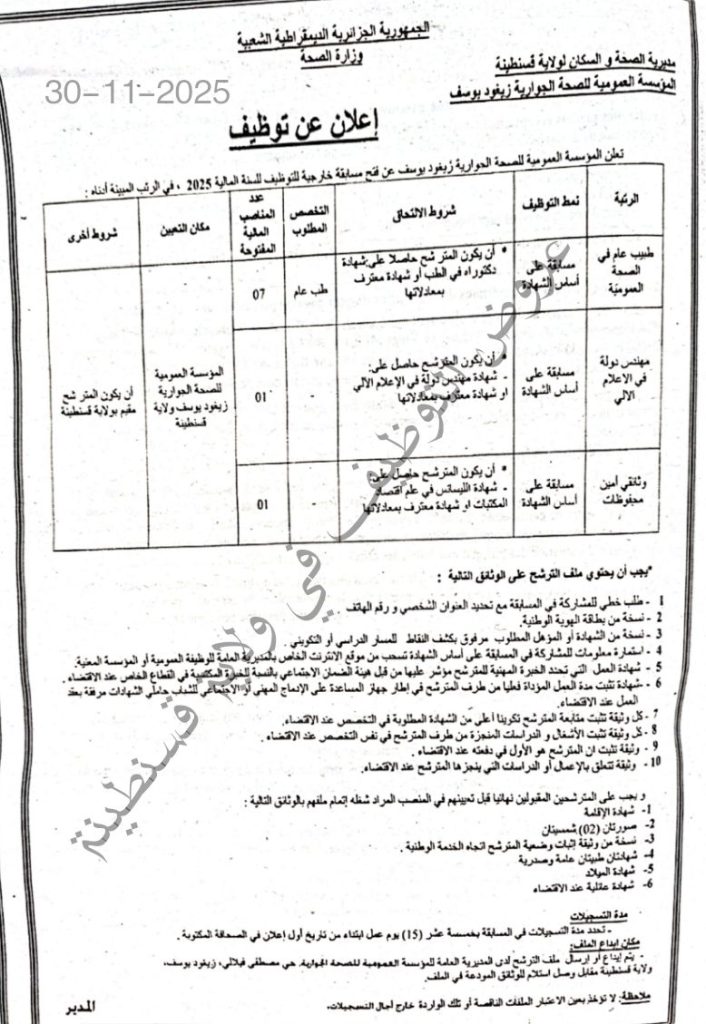 الجمهورية الجزائرية الديمقراطية الشعبية
وزارة الصحة
مديرية الصحة و السكان لولاية قسنطينة
المؤسسة العمومية للصحة الجوارية زيغود يوسف
30-11-2025
إعلان عن توظيف
تعلن المؤسسة العمومية للصحة الجوارية زيغود يوسف عن فتح مسابقة خارجية للتوظيف للسنة المالية 2025 ، في الرتب المبينة أدناه :
الرتبة | نمط التوظيف | شروط الالتحاق | التخصص المطلوب | عدد المناصب المالية المفتوحة | مكان التعيين | شروط أخرى
طبيب عام في الصحة العمومية | مسابقة على أساس الشهادة | • أن يكون المترشح حاصلا على:شهادة دكتوراه في الطب أو شهادة معترف بمعادلاتها | طب عام | 07 | المؤسسة العمومية للصحة الجوارية زيغود يوسف ولاية قسنطينة | أن يكون المترشح مقيم بولاية قسنطينة
مهندس دولة في الاعلام الالي | مسابقة على أساس الشهادة | • أن يكون المترشح حاصل على: - شهادة مهندس دولة في الإعلام الالي او شهادة معترف بمعادلاتها | - | 01
وثائقي أمين محفوظات | مسابقة على أساس الشهادة | • أن يكون المترشح حاصل على: - شهادة الليسانس في علم اقتصاد المكتبات او شهادة معترف بمعادلاتها | - | 01
*يجب أن يحتوي ملف الترشح على الوثائق التالية :
1 - طلب خطي للمشاركة في المسابقة مع تحديد العنوان الشخصي و رقم الهاتف
2 - نسخة من بطاقة الهوية الوطنية.
3 - نسخة من الشهادة أو المؤهل المطلوب مرفوق بكشف النقاط للمسار الدراسي أو التكويني
4 - استمارة معلومات للمشاركة في المسابقة على أساس الشهادة تسحب من موقع الانترنت الخاص بالمديرية العامة للوظيفة العمومية أو المؤسسة المعنية.
5 - شهادة العمل التي تحدد الخبرة المهنية للمترشح مؤشر عليها من قبل هيئة الضمان الاجتماعي بالنسبة للخبرة المكتسبة في القطاع الخاص عند الاقتضاء.
6 - شهادة تثبت مدة العمل المؤداة فعليا من طرف المترشح في إطار جهاز المساعدة على الإدماج المهني أو الاجتماعي للشباب حاملي الشهادات مرفقة بعقد
العمل عند الاقتضاء.
7 - كل وثيقة تثبت متابعة المترشح تكوينا أعلى من الشهادة المطلوبة في التخصص عند الاقتضاء.
8 - كل وثيقة تثبت الأشغال و الدراسات المنجزة من طرف المترشح في نفس التخصص عند الاقتضاء.
9 - وثيقة تثبت ان المترشح هو الأول في دفعته عند الاقتضاء.
10 - وثيقة تتعلق بالإعمال أو الدراسات التي ينجزها المترشح عند الاقتضاء.
و يجب على المترشحين المقبولين نهائيا قبل تعيينهم في المنصب المراد شغله إتمام ملفهم بالوثائق التالية :
1- شهادة الإقامة
2- صورتان (02) شمسيتان
3- نسخة من وثيقة إثبات وضعية المترشح اتجاه الخدمة الوطنية .
4- شهادتان طبيتان عامة وصدرية
5- شهادة الميلاد
6- شهادة عائلية عند الاقتضاء
مدة التسجيلات
- تحدد مدة التسجيلات في المسابقة بخمسة عشر (15) يوم عمل ابتداء من تاريخ أول إعلان في الصحافة المكتوبة.
مكان إيداع الملف:
- يتم إيداع أو إرسال ملف الترشح لدى المديرية العامة للمؤسسة العمومية للصحة الجوارية، حي مصطفى فيلالي، زيغود يوسف،
ولاية قسنطينة مقابل وصل استلام للوثائق المودعة في الملف.
ملاحظة: لا تؤخذ بعين الاعتبار الملفات الناقصة أو تلك الواردة خارج آجال التسجيلات.
المدير
عروض التوظيف في ولاية قسنطينة